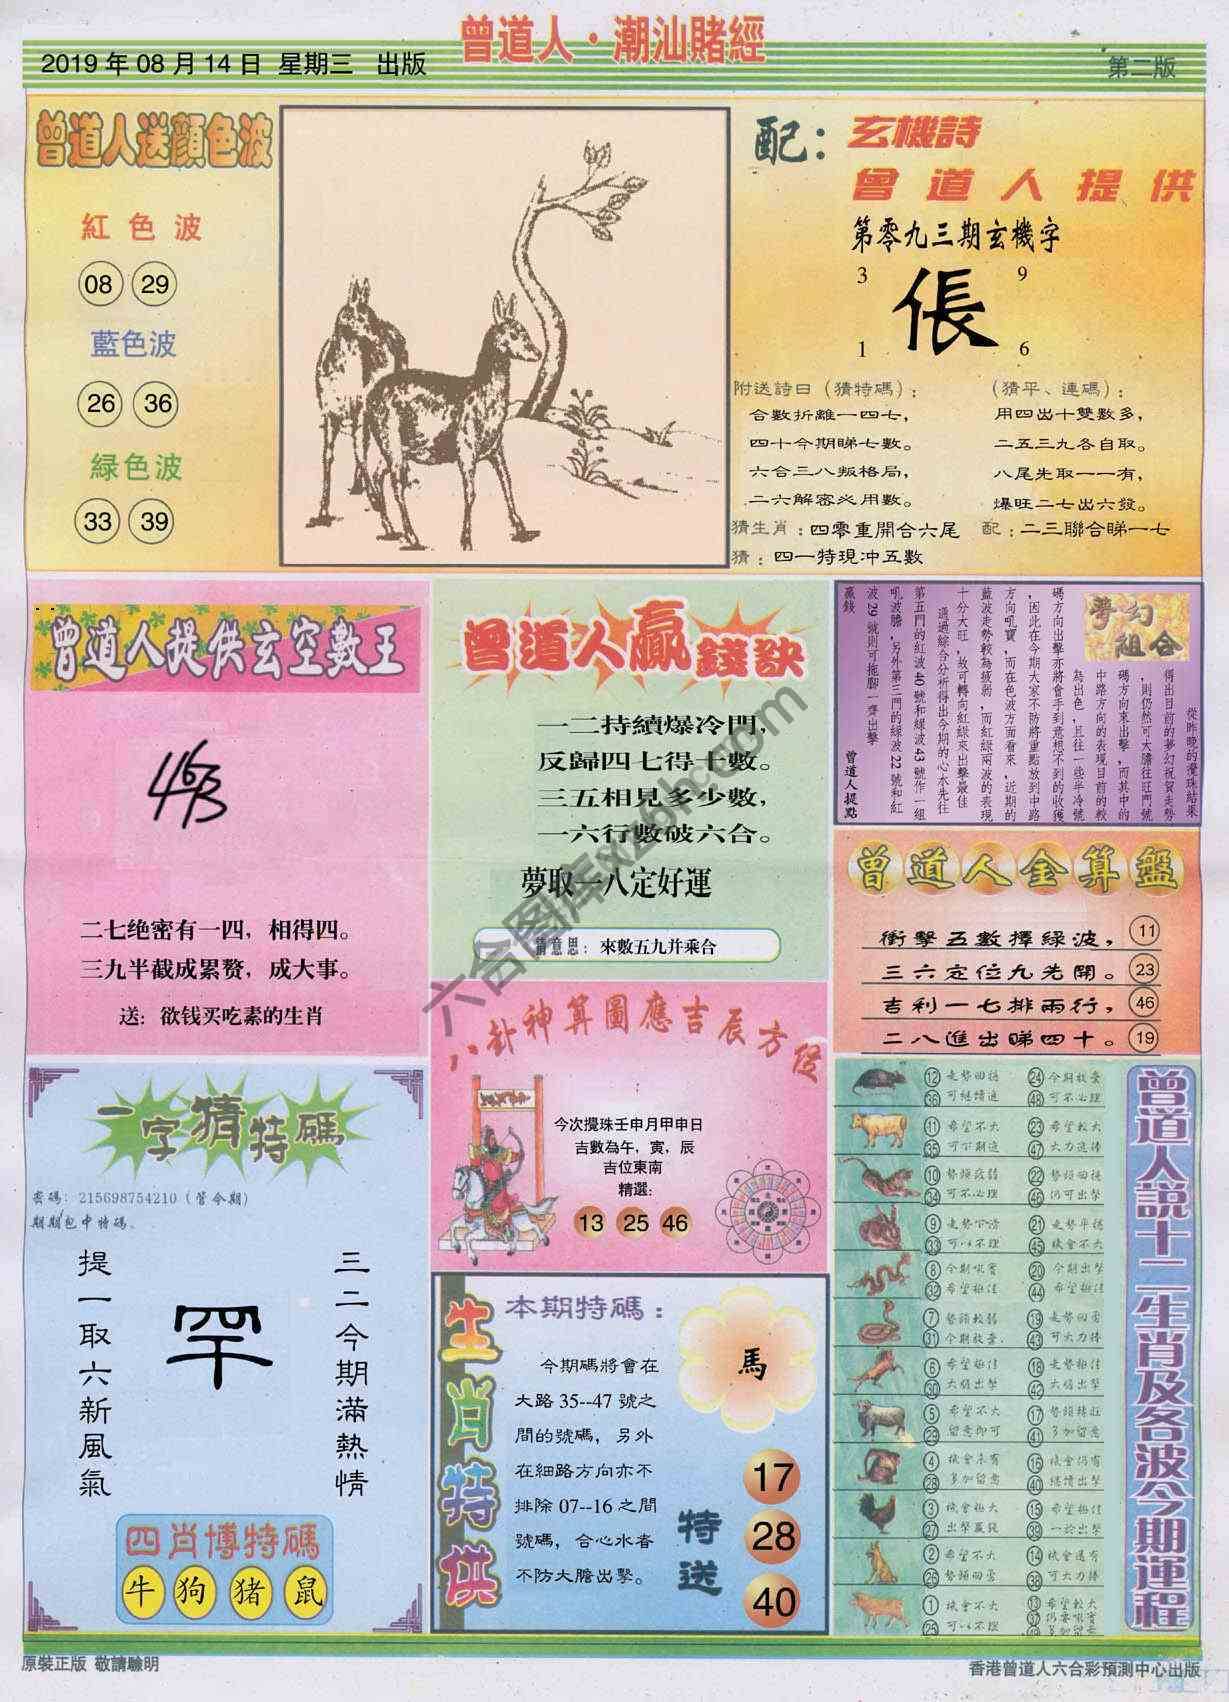 曾道人·潮汕賭經
2019年08月14日 星期三 出版
第二版
曾道人送顏色波
紅色波
08 29
藍色波
26 36
緑色波
33 39
配：玄機詩
曾道人提供
第零九三期玄機字
3 9
倀
1 6
附送詩曰（猜特碼）：
合數折離一四七，
四十今期睇七數。
六合三八叛格局，
二六解密必用數。
（猜平、連碼）：
用四出十雙數多，
二五三九各自取。
八尾先取一一有，
爆旺二七出六發。
猜生肖：四零重開合六尾 配：二三聯合睇一七
猜：四一特現冲五數
曾道人提供玄空數王
463
二七绝密有一四，相得四。
三九半截成累赘，成大事。
送：欲钱买吃素的生肖
曾道人贏錢訣
一二持續爆冷門，
反歸四七得十數。
三五相見多少數，
一六行數破六合。
夢取一八定好運
猜意思：來數五九并乘合
夢幻組合
從昨晚的攪珠結果
得出目前的夢幻祝賀走勢
，則仍然可大膽往旺門號
碼方向來出擊，而其中的
中路方向的表現目前的較
為出色，且往一些半冷號
碼方向出擊亦將會手到意想不到的收獲
，因此在今期大家不防將重點放到中路
方向吼寶，而在色波方面看來，近期的
藍波走勢較為疲弱，而紅綠兩波的表現
十分大旺，故可轉向紅綠來出擊最佳
通過綜合分析得出今期的心水先往
第五門的紅波40號和緑波43號作一組
吼波膽，另外第三門的緑波22號和紅
波29號則可拖腳一齊出擊
贏錢
曾道人提點
曾道人金算盤
衝擊五數擇緑波， 11
三六定位九先開。 23
吉利一七排兩行， 46
二八進出睇四十。 19
八卦神算圖應吉辰方位
今次攪珠壬申月甲申日
吉數為午，寅，辰
吉位東南
精選：
13 25 46
一字猜特碼
密碼：215698754210（管今期）
期期包中特碼。
三二今期滿熱情
罕
提一取六新風氣
四肖博特碼
牛 狗 猪 鼠
生肖特供
本期特碼：
馬
今期碼將會在
大路35--47號之
間的號碼，另外
在細路方向亦不
排除07--16之間
號碼，合心水者
不防大膽出擊。
特送
17
28
40
曾道人説十二生肖及各波今期運程
12 走勢回穩 24 今期放棄
36 可繼續追 48 可不必理
11 希望不大 23 希望較大
35 可不期追 47 大力追捧
10 勢頭疲弱 22 勢頭回穩
34 可不必理 46 仍可出擊
9 走勢下滑 21 走勢平穩
33 可以不理 45 機會不大
8 今期吼實 20 今期出擊
32 希望極佳 44 希望極佳
7 勢頭較弱 19 走勢回勇
31 今期放棄 43 可大力捧
6 希望極佳 18 走勢極佳
30 大膽出擊 42 大膽出擊
5 希望不大 17 勢頭轉旺
29 留意即可 41 多加留意
4 機會未有 16 機會仍有
28 多加留意 40 繼續出擊
3 機會極大 15 希望極佳
27 出擊贏錢 39 一於出擊
2 希望不大 14 機會還有
26 勢頭回勇 38 可大力捧
1 機會不大 13 希望較大
25 可以不理 37 仍要吼實
49 多加留意
六合图库xz6h.com
原裝正版 敬請驗明
香港曾道人六合彩預測中心出版